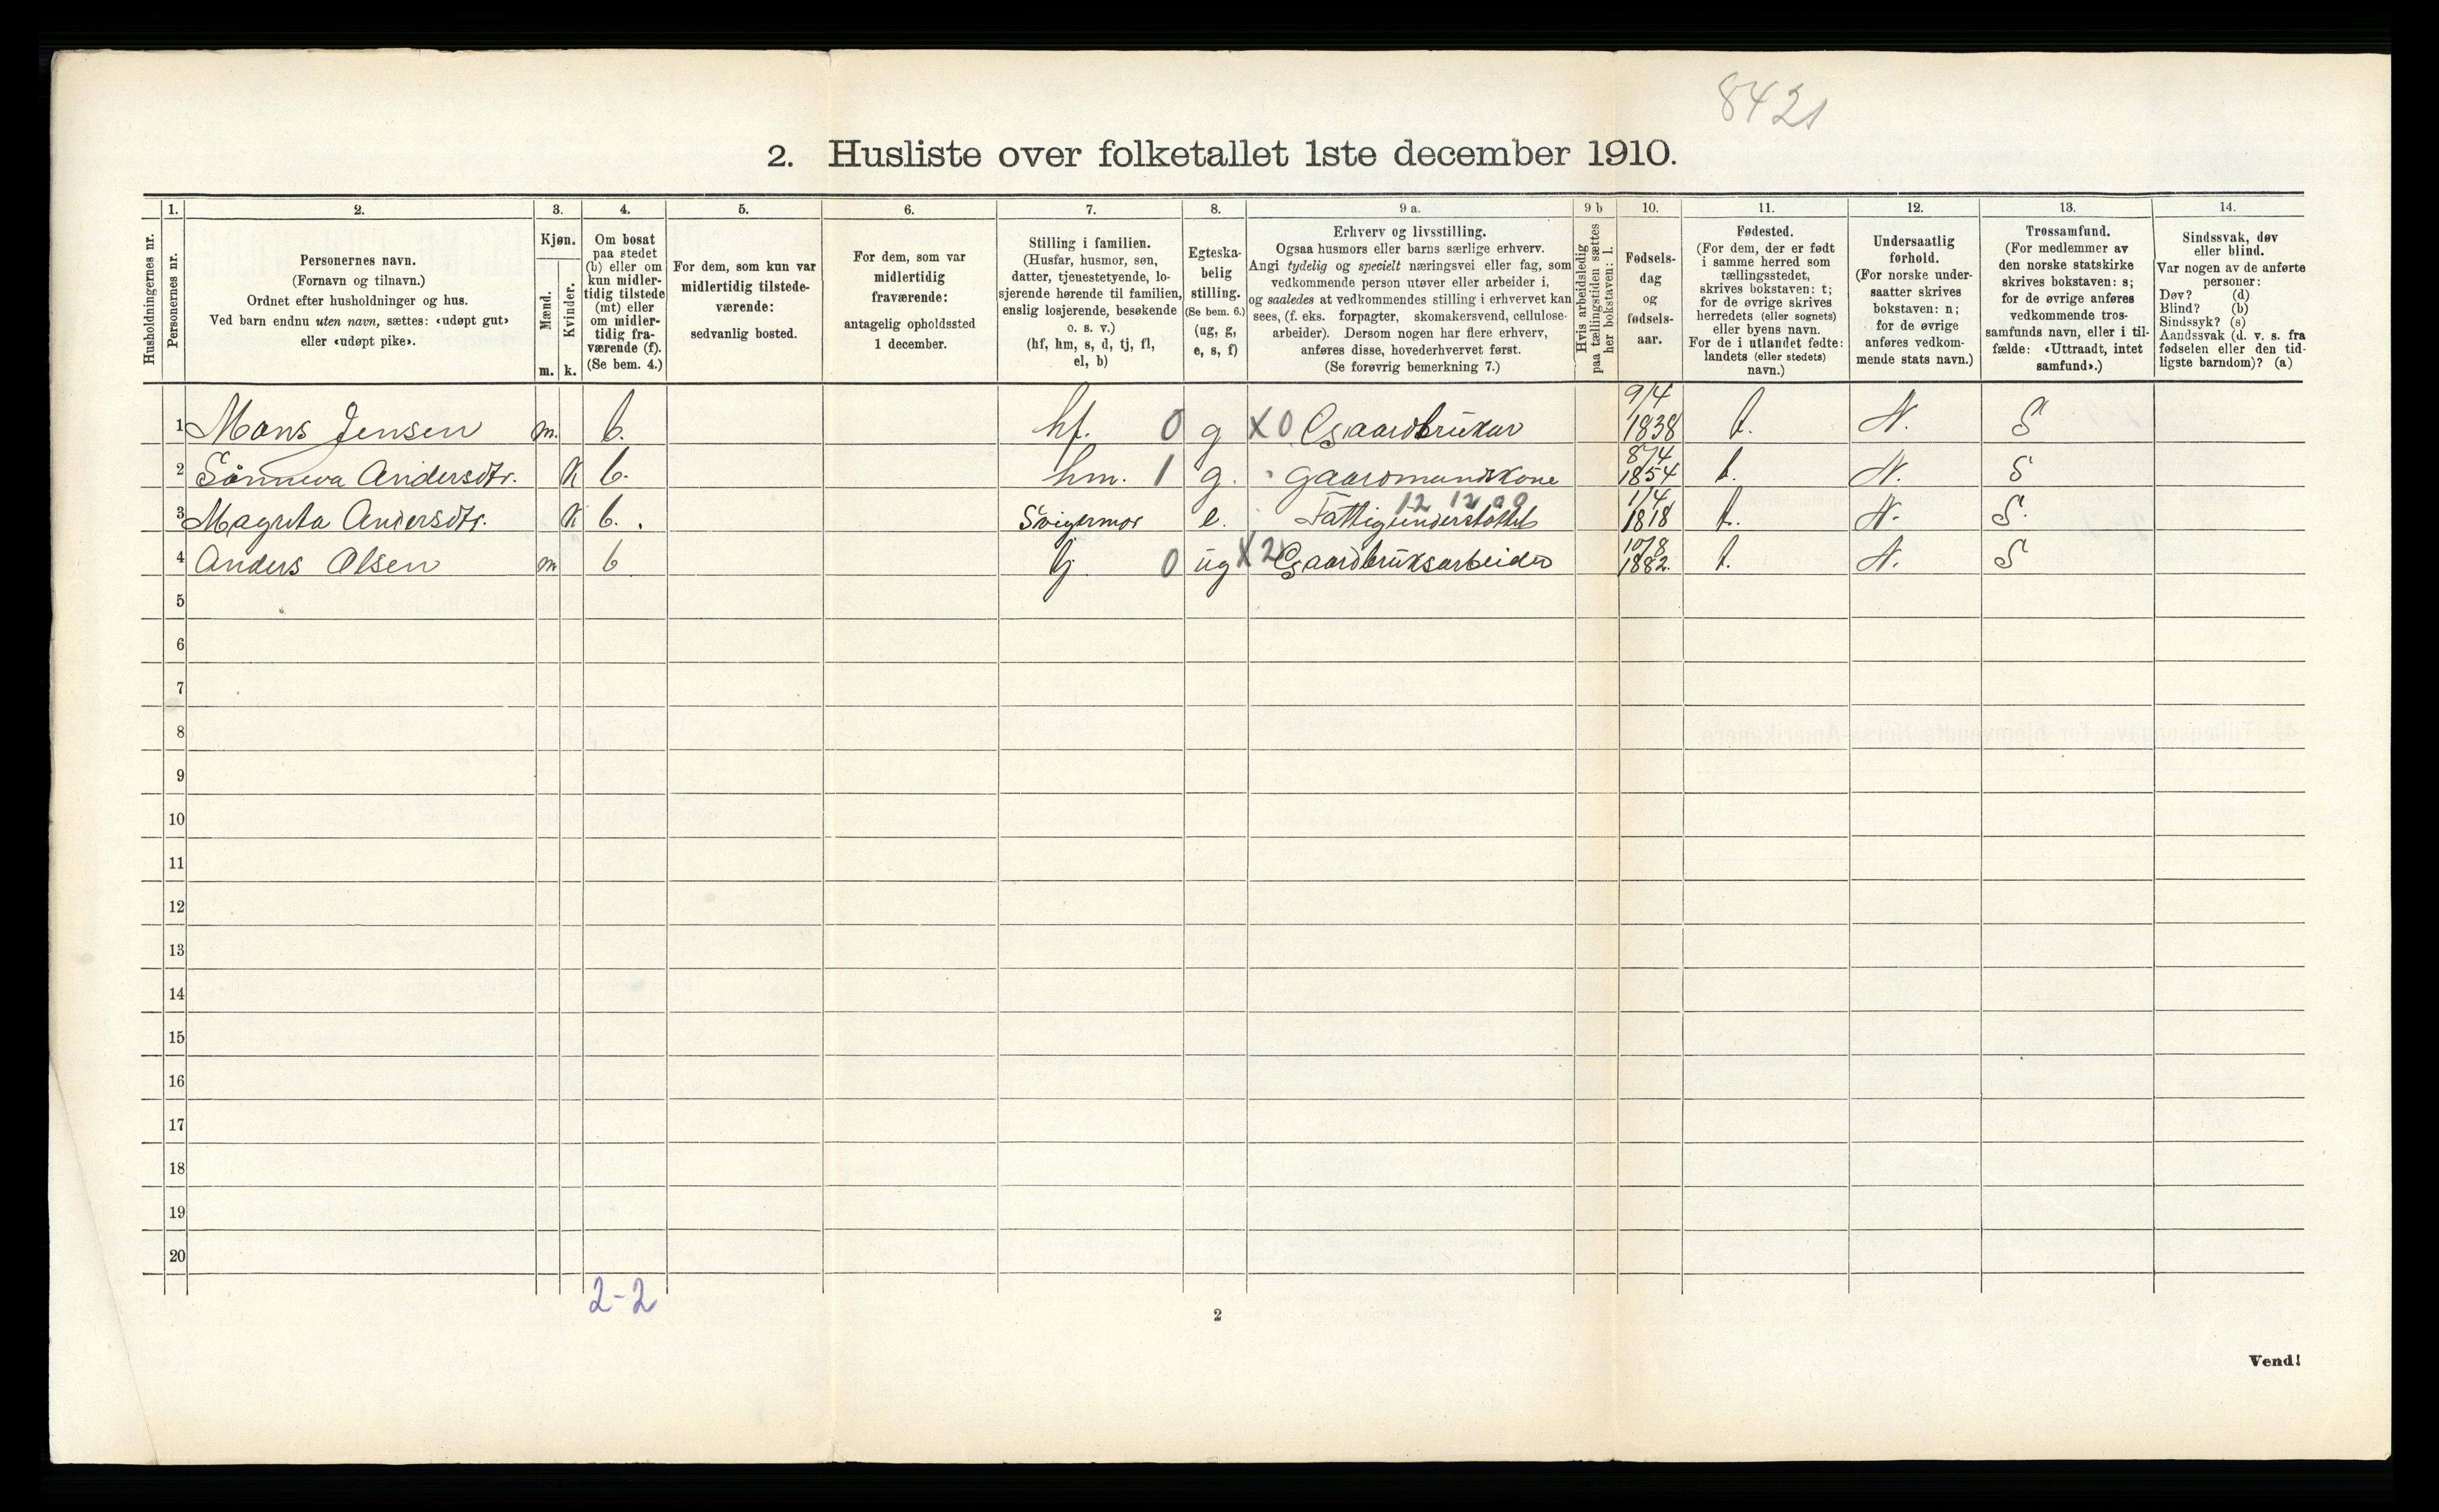 8421
2. Husliste over folketallet 1ste december 1910.
1. 2. 3. 4. 5. 6. 7. 8. 9 a. 9 b 10. 11. 12. 13. 14.
Husholdningernes nr.
Personernes nr.
Personernes navn.
(Fornavn og tilnavn.)
Ordnet efter husholdninger og hus.
Ved barn endnu uten navn, sættes: «udøpt gut»
eller «udøpt pike».
Kjøn.
Mænd.
Kvinder.
m. k.
Om bosat
paa stedet
(b) eller om
kun midler-
tidig tilstede
(mt) eller
om midler-
tidig fra-
værende (f).
(Se bem. 4.)
For dem, som kun var
midlertidig tilstede-
værende:
sedvanlig bosted.
For dem, som var
midlertidig
fraværende:
antagelig opholdssted
1 december.
Stilling i familien.
(Husfar, husmor, søn,
datter, tjenestetyende, lo-
sjerende hørende til familien,
enslig losjerende, besøkende
o. s. v.)
(hf, hm, s, d, tj, fl,
el, b)
Egteska-
belig
stilling.
(Se bem. 6.)
(ug, g,
e, s, f)
Erhverv og livsstilling.
Ogsaa husmors eller barns særlige erhverv.
Angi tydelig og specielt næringsvei eller fag, som
vedkommende person utøver eller arbeider i,
og saaledes at vedkommendes stilling i erhvervet kan
sees, (f. eks. forpagter, skomakersvend, cellulose-
arbeider). Dersom nogen har flere erhverv,
anføres disse, hovederhvervet først.
(Se forøvrig bemerkning 7.)
Hvis arbeidsledig
paa tællingstiden sættes
her bokstaven: l.
Fødsels-
dag
og
fødsels-
aar.
Fødested.
(For dem, der er født
i samme herred som
tællingsstedet,
skrives bokstaven: t;
for de øvrige skrives
herredets (eller sognets)
eller byens navn.
For de i utlandet fødte:
landets (eller stedets)
navn.)
Undersaatlig
forhold.
(For norske under-
saatter skrives
bokstaven: n;
for de øvrige
anføres vedkom-
mende stats navn.)
Trossamfund.
(For medlemmer av
den norske statskirke
skrives bokstaven: s;
for de øvrige anføres
vedkommende tros-
samfunds navn, eller i til-
fælde: «Uttraadt, intet
samfund».)
Sindssvak, døv
eller blind.
Var nogen av de anførte
personer:
Døv? (d)
Blind? (b)
Sindssyk? (s)
Aandssvak (d. v. s. fra
fødselen eller den tid-
ligste barndom)? (a)
1 Mons Jensen m. b. hf. 0 g X 0 Gaardbruker 9/4 1838 t. N. S
2 Sønneva Andersdtr. K b. hm. 1 g. gaardmandskone 8/4 1854 t. N. S
3 Magreta Andersdtr. K b. Svigermor e. Fattigunderstøttet 12 12 00 1/4 1818 t. N. S.
4 Anders Olsen m b tj 0 ug X 2 Gaardbruksarbeider 10/8 1882. t. N. S
5
6
7
8
9
10
11
12
13
14
15
16
17
18
19
20
2-2
2
Vend!